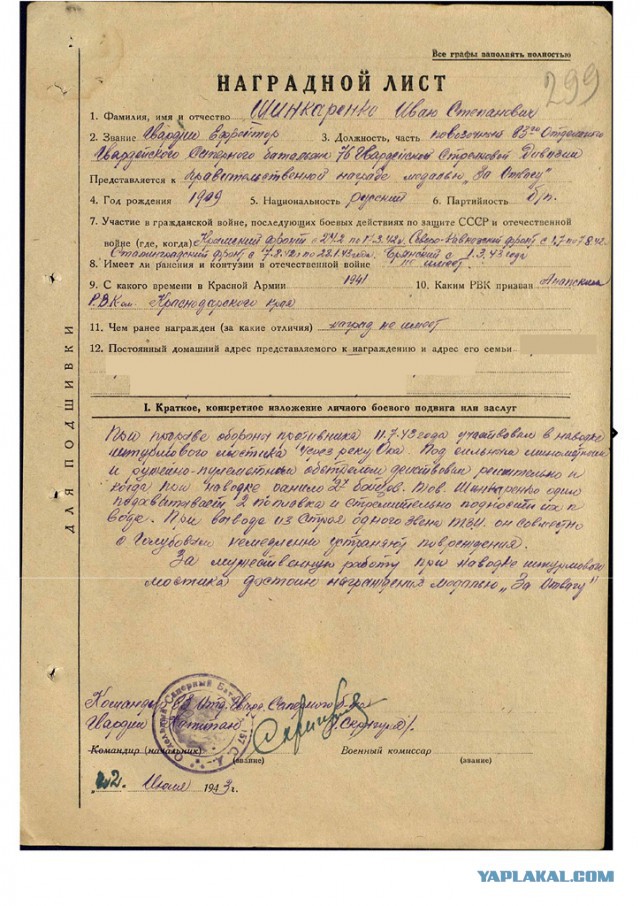 Все графы заполнять полностью
299
НАГРАДНОЙ ЛИСТ
1. Фамилия, имя и отчество Шинкаренко Иван Степанович
2. Звание Гвардии Ефрейтор 3. Должность, часть повозочный 83го Отдельного
Гвардейского Саперного батальона 76 Гвардейской Стрелковой Дивизии
Представляется к правительственной награде медалью „За Отвагу"
4. Год рождения 1909 5. Национальность русский 6. Партийность б/п.
7. Участие в гражданской войне, последующих боевых действиях по защите СССР и отечественной
войне (где, когда) Крымский фронт с по 42г. Северо-Кавказский фронт с 1.7 по 7.8.42г.
Сталинградский фронт с по Брянский с 1.3.43 года
8. Имеет ли ранения и контузии в отечественной войне не имеет.
9. С какого времени в Красной Армии 1941 10. Каким РВК призван Анапским
РВК-ом. Краснодарского края
11. Чем ранее награжден (за какие отличия) наград не имеет
12. Постоянный домашний адрес представляемого к награждению и адрес его семьи
ДЛЯ ПОДШИВКИ
I. Краткое, конкретное изложение личного боевого подвига или заслуг
При прорыве обороны противника 11.7.43 года участвовал в наводке
штурмового мостика через реку Ока. Под сильным минометным
и ружейно-пулеметным обстрелом действовал решительно и
когда при наводке ранило 2х бойцов. Тов. Шинкаренко один
подхватывает 2 поплавка и стремительно подносит их к
воде. При выводе из строя одного звена ТЗИ. он совместно
с Голубовым немедленно устраняет повреждения.
За мужественную работу при наводке штурмового
мостика достоин награждения медалью „За Отвагу"
Командир 83 Отд. Гвард. Саперного б-на
Гвардии Капитан
Командир (начальник) Военный комиссар
(звание) (звание)
22. Июля 1943г.
YAPLAKAL.COM